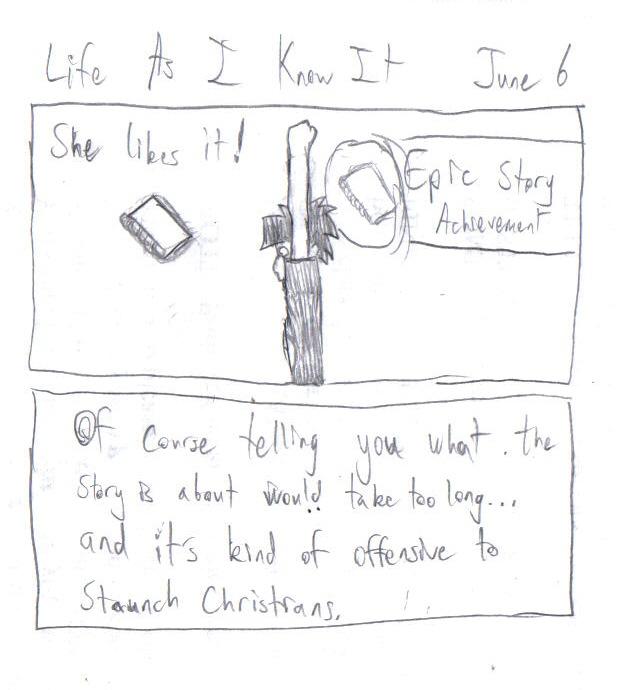 Life As I Know It June 6
She likes it!
Epic Story
Achievement
Of course telling you what the
Story is about would take too long...
and it's kind of offensive to
Staunch Christians.